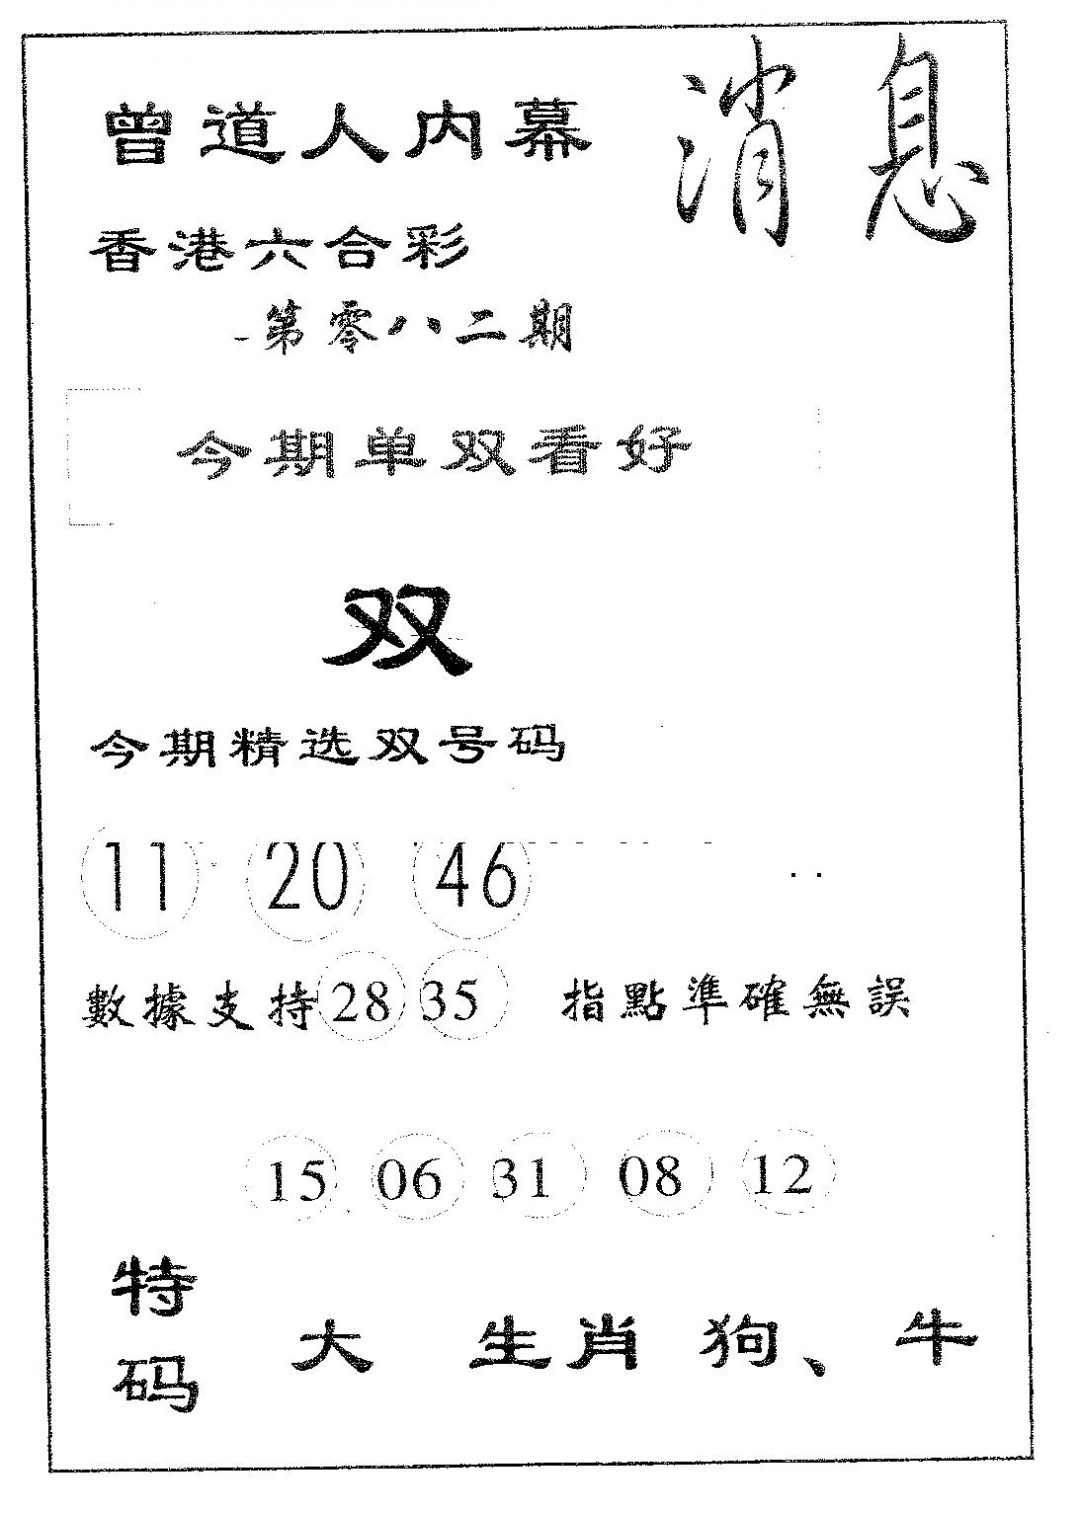 曾道人内幕 消息
香港六合彩
第零八二期
今期单双看好
双
今期精选双号码
11 20 46
數據支持 28 35 指點準確無誤
15 06 31 08 12
特码 大 生肖 狗、牛